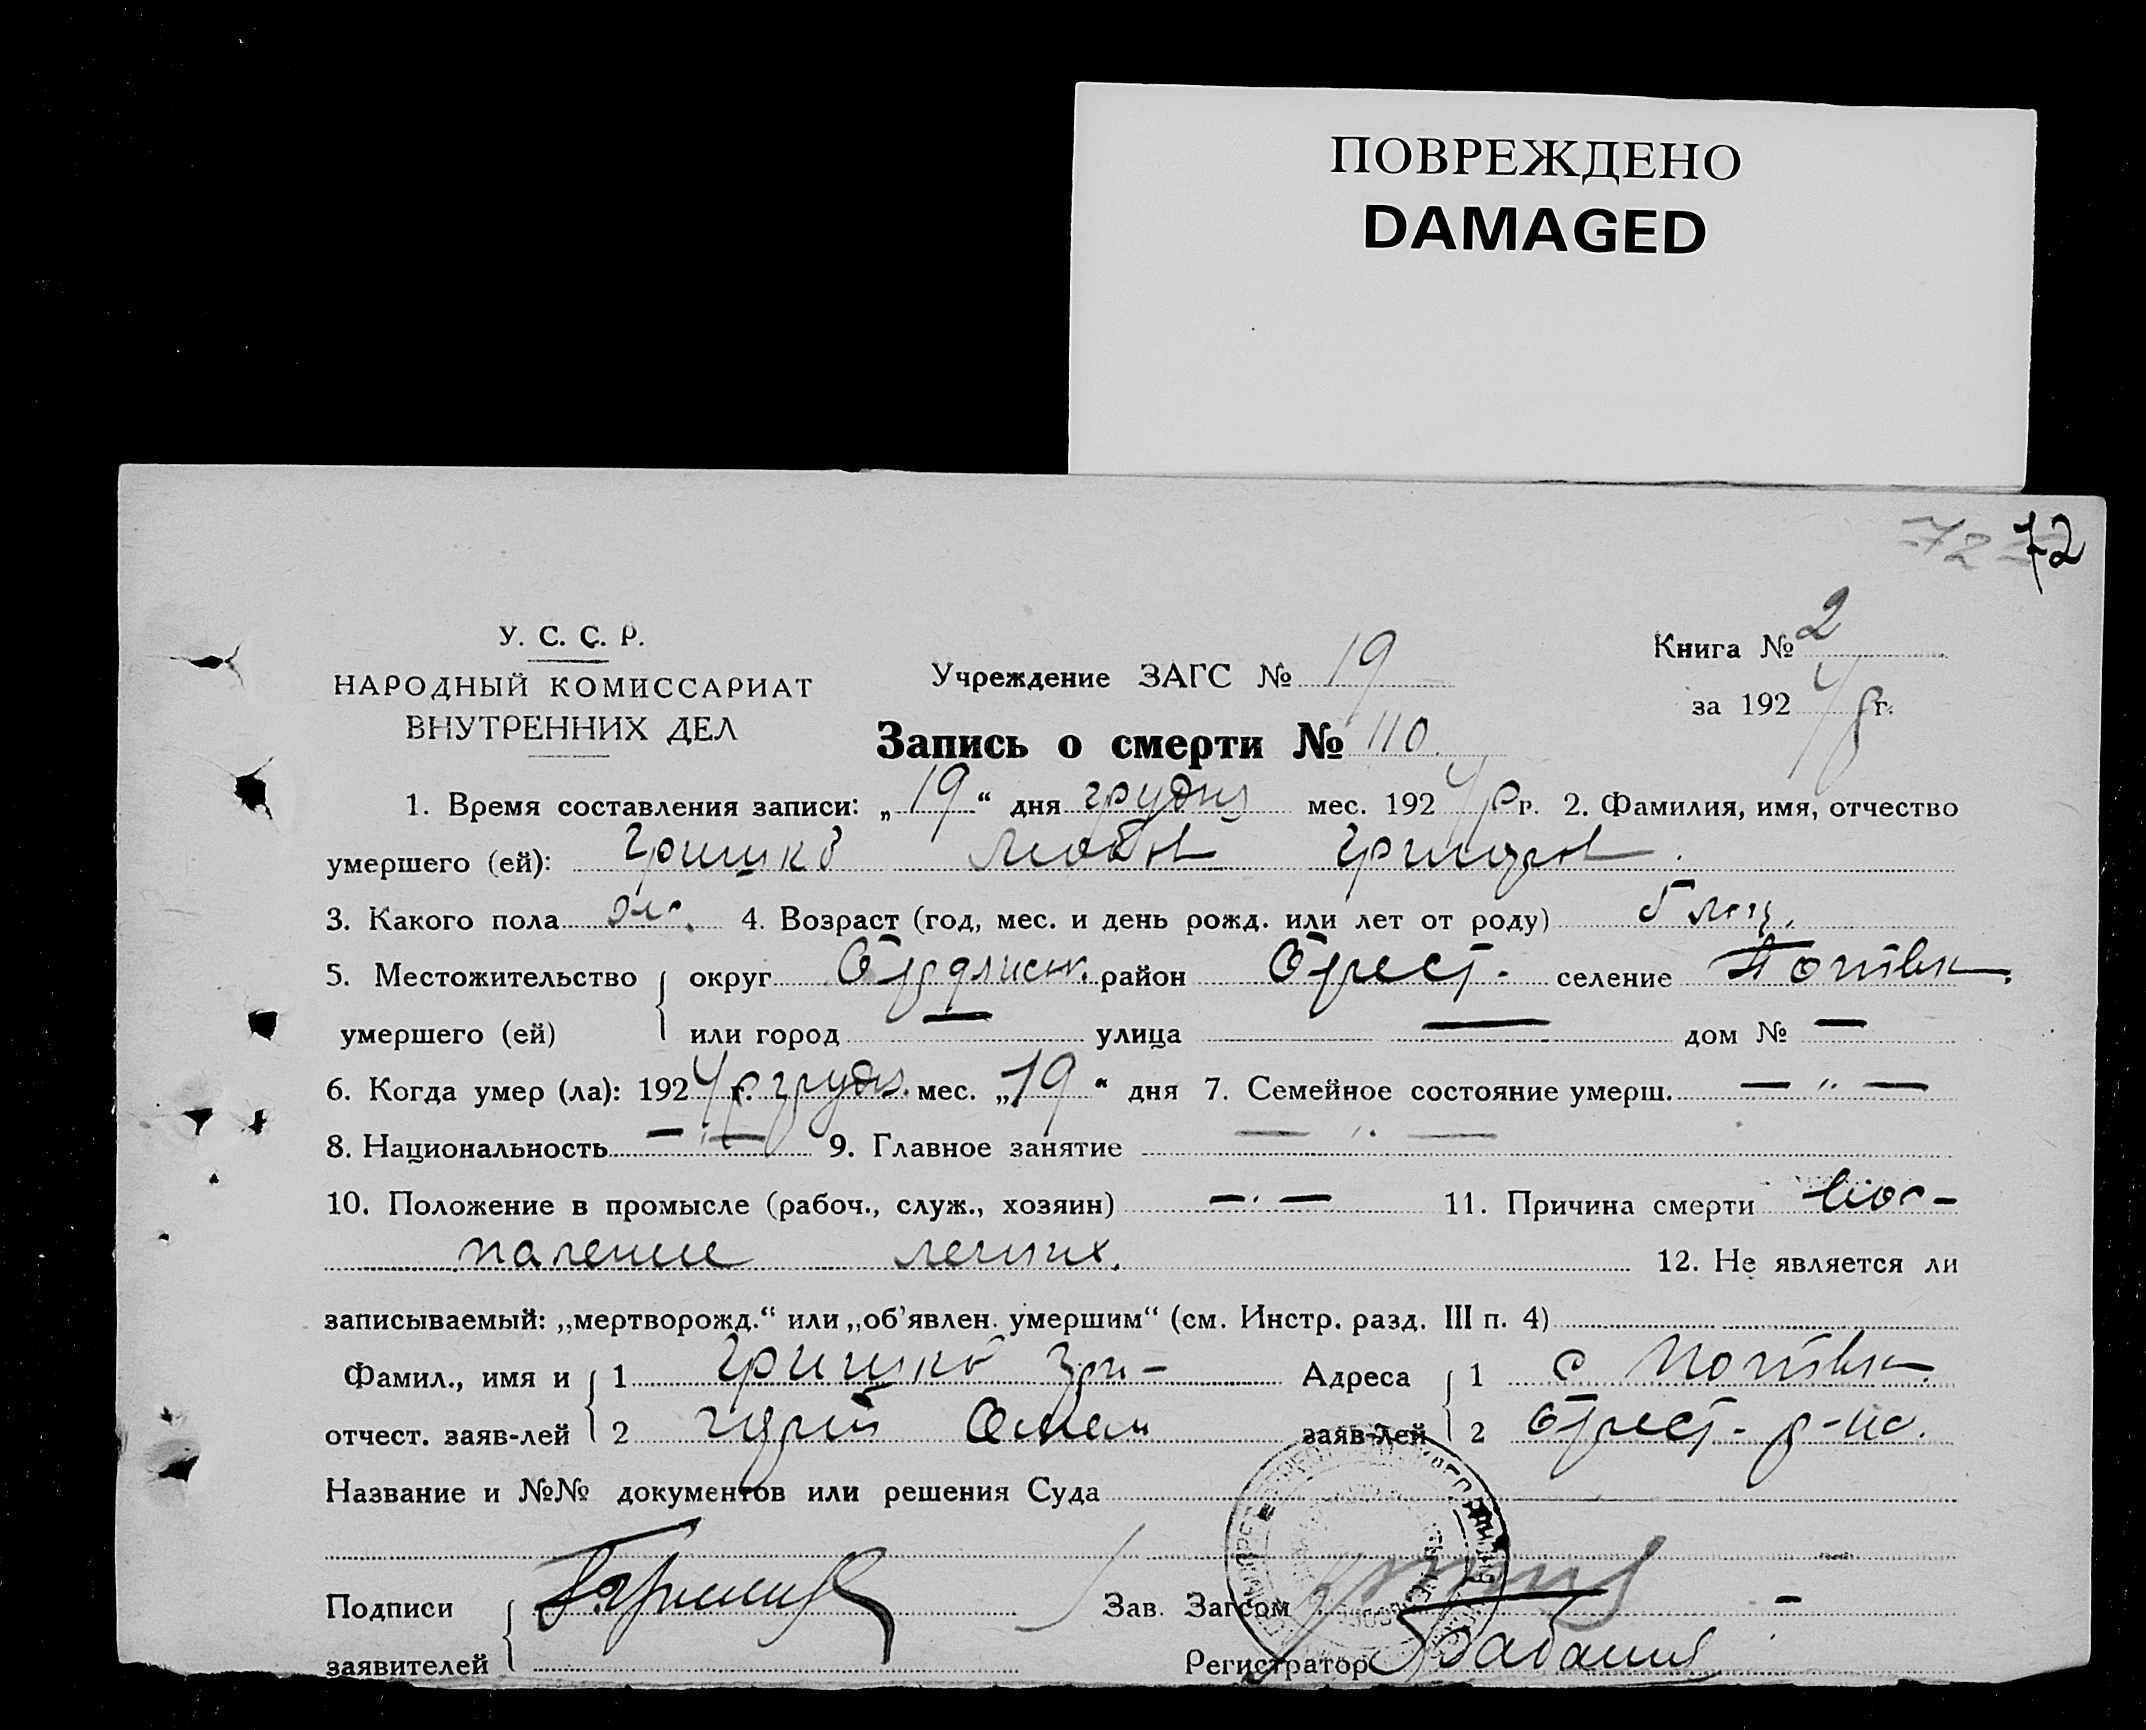 ПОВРЕЖДЕНО
DAMAGED
72 72
У. С. С. Р.
НАРОДНЫЙ КОМИССАРИАТ
ВНУТРЕННИХ ДЕЛ
Учреждение ЗАГС № 19
Книга № 2
за 192 г.
Запись о смерти № 110
1. Время составления записи: „19“ дня грудня мес. 1924 г. 2. Фамилия, имя, отчество
умершего (ей): Гришко Любов Григоров
3. Какого пола ж. 4. Возраст (год, мес. и день рожд. или лет от роду) 5
5. Местожительство округ район селение
умершего (ей) или город — улица — дом № —
6. Когда умер (ла): 1924 г. грудн. мес. „19“ дня 7. Семейное состояние умерш. — „ —
8. Национальность — „ — 9. Главное занятие — „ —
10. Положение в промысле (рабоч., служ., хозяин) — „ — 11. Причина смерти вос-
паление легких. 12. Не является ли
записываемый: „мертворожд.“ или „об’явлен. умершим“ (см. Инстр. разд. III п. 4)
Фамил., имя и 1 Гришко Гри- Адреса 1 с
отчест. заяв-лей 2 горій заяв-лей 2 р-на.
Название и №№ документов или решения Суда
Подписи Зав. Загсом
заявителей Регистратор